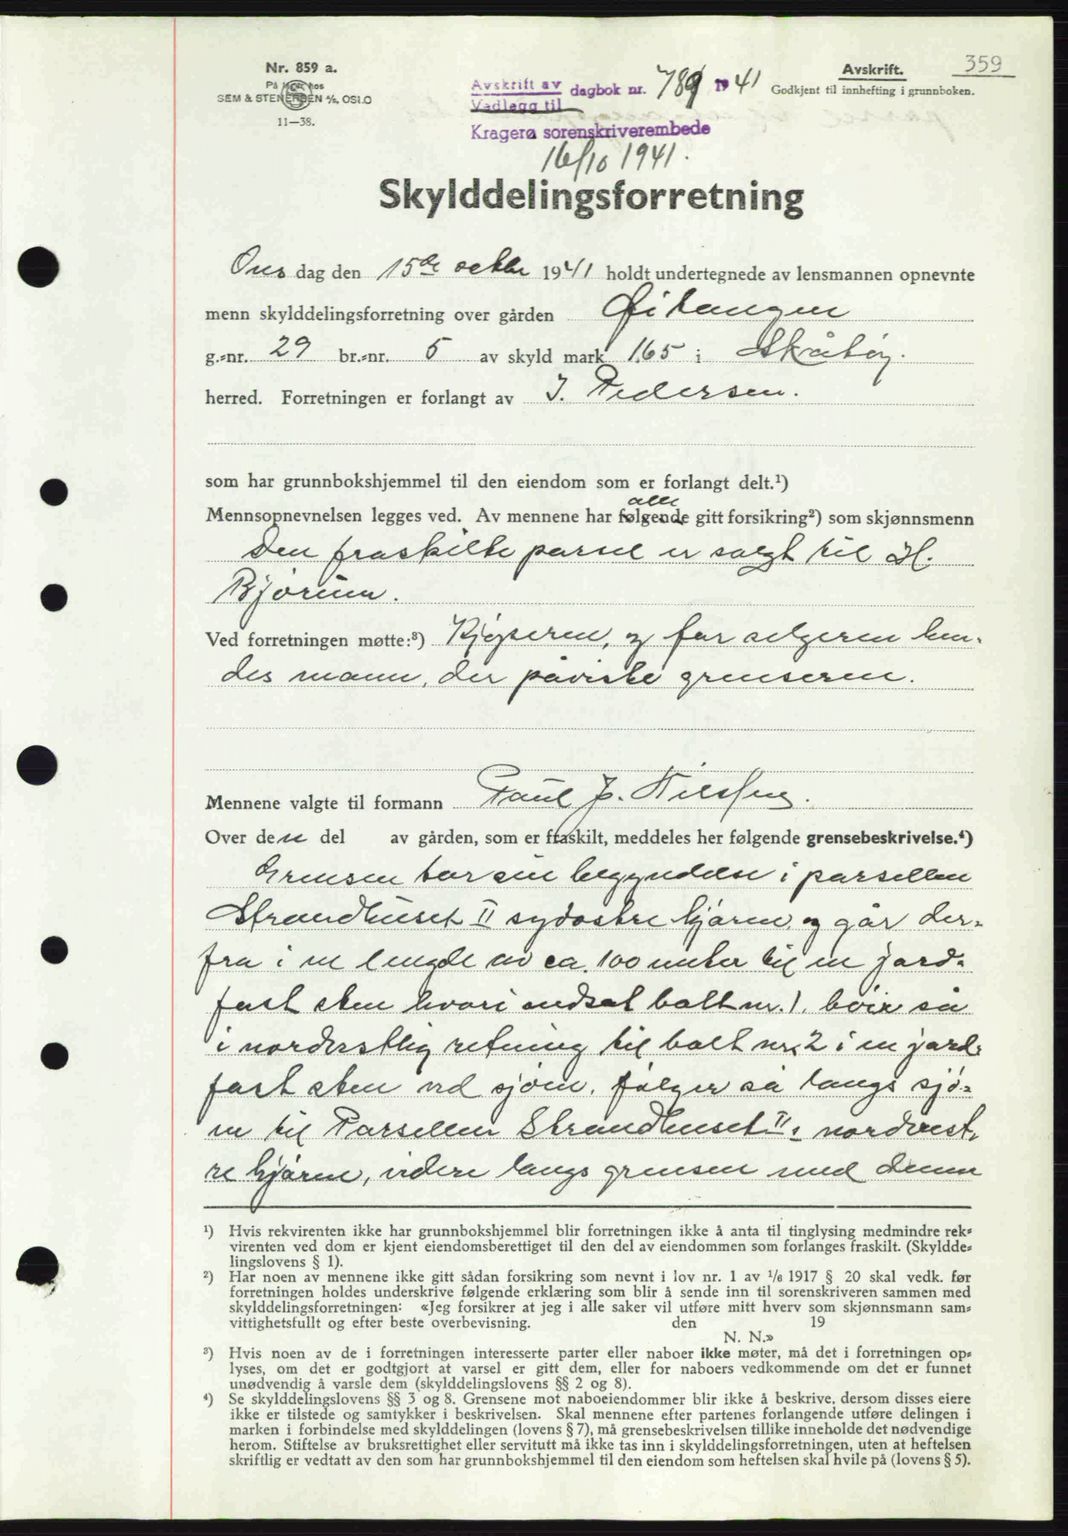 Nr. 859 a.
På lager hos
SEM & STENERSEN A/S, OSLO
11—38.
Avskrift av
Vedlegg til
dagbok nr. 789 1941
Kragerø sorenskriverembede
16/10 1941.
Avskrift.
359
Godkjent til innhefting i grunnboken.
Skylddelingsforretning
Ons dag den 15de oktbr 1941 holdt undertegnede av lensmannen opnevnte
menn skylddelingsforretning over gården Øitangen
g.-nr. 29 br.-nr. 5 av skyld mark 1.65 i Skåtøy.
herred. Forretningen er forlangt av I. Pedersen.
som har grunnbokshjemmel til den eiendom som er forlangt delt.¹)
alle
Mennsopnevnelsen legges ved. Av mennene har følgende gitt forsikring²) som skjønnsmenn
Den fraskilte parsel er solgt til H.
Bjørum.
Ved forretningen møtte:³) Kjøperen, og for selgeren hen-
des mann, der påviste grenseren.
Mennene valgte til formann Paul J. Nilsen.
Over den del av gården, som er fraskilt, meddeles her følgende grensebeskrivelse.⁴)
Grensen tar sin begyndelse i parsellen
Strandhuset II sydøstre hjørne, og går der-
fra i en lengde av ca. 100 meter til en jord-
fast sten hvori nedsat bolt nr. 1. så
i nordøstlig retning til bolt nr. 2 i en jord-
fast sten ved sjøen, følger så langs sjø-
en til Parsellen Strandhuset II, nordvest-
re hjørne, videre langs grensen med denne
¹) Hvis rekvirenten ikke har grunnbokshjemmel blir forretningen ikke å anta til tinglysing medmindre rek-
virenten ved dom er kjent eiendomsberettiget til den del av eiendommen som forlanges fraskilt. (Skyldde-
lingslovens § 1).
²) Har noen av mennene ikke gitt sådan forsikring som nevnt i lov nr. 1 av 1/6 1917 § 20 skal vedk. før
forretningen holdes underskrive følgende erklæring som blir å sende inn til sorenskriveren sammen med
skylddelingsforretningen: «Jeg forsikrer at jeg i alle saker vil utføre mitt hverv som skjønnsmann sam-
vittighetsfullt og efter beste overbevisning. den 19
N. N.»
³) Hvis noen av de i forretningen interesserte parter eller naboer ikke møter, må det i forretningen op-
lyses, om det er godtgjort at varsel er gitt dem, eller for naboers vedkommende om det er funnet
unødvendig å varsle dem (skylddelingslovens §§ 2 og 8).
⁴) Se skylddelingslovens §§ 3 og 8. Grensene mot naboeiendommer blir ikke å beskrive, dersom disses eiere
ikke er tilstede og samtykker i beskrivelsen. Skal mennene efter partenes forlangende utføre delingen i
marken i forbindelse med skylddelingen (lovens § 7), må grensebeskrivelsen tillike inneholde det nødvendige
herom. Stiftelse av bruksrettighet eller servitutt må ikke tas inn i skylddelingsforretningen, uten at heftelsen
skriftlig er vedtatt av den som har grunnbokshjemmel til den eiendom som heftelsen skal hvile på (lovens § 5).